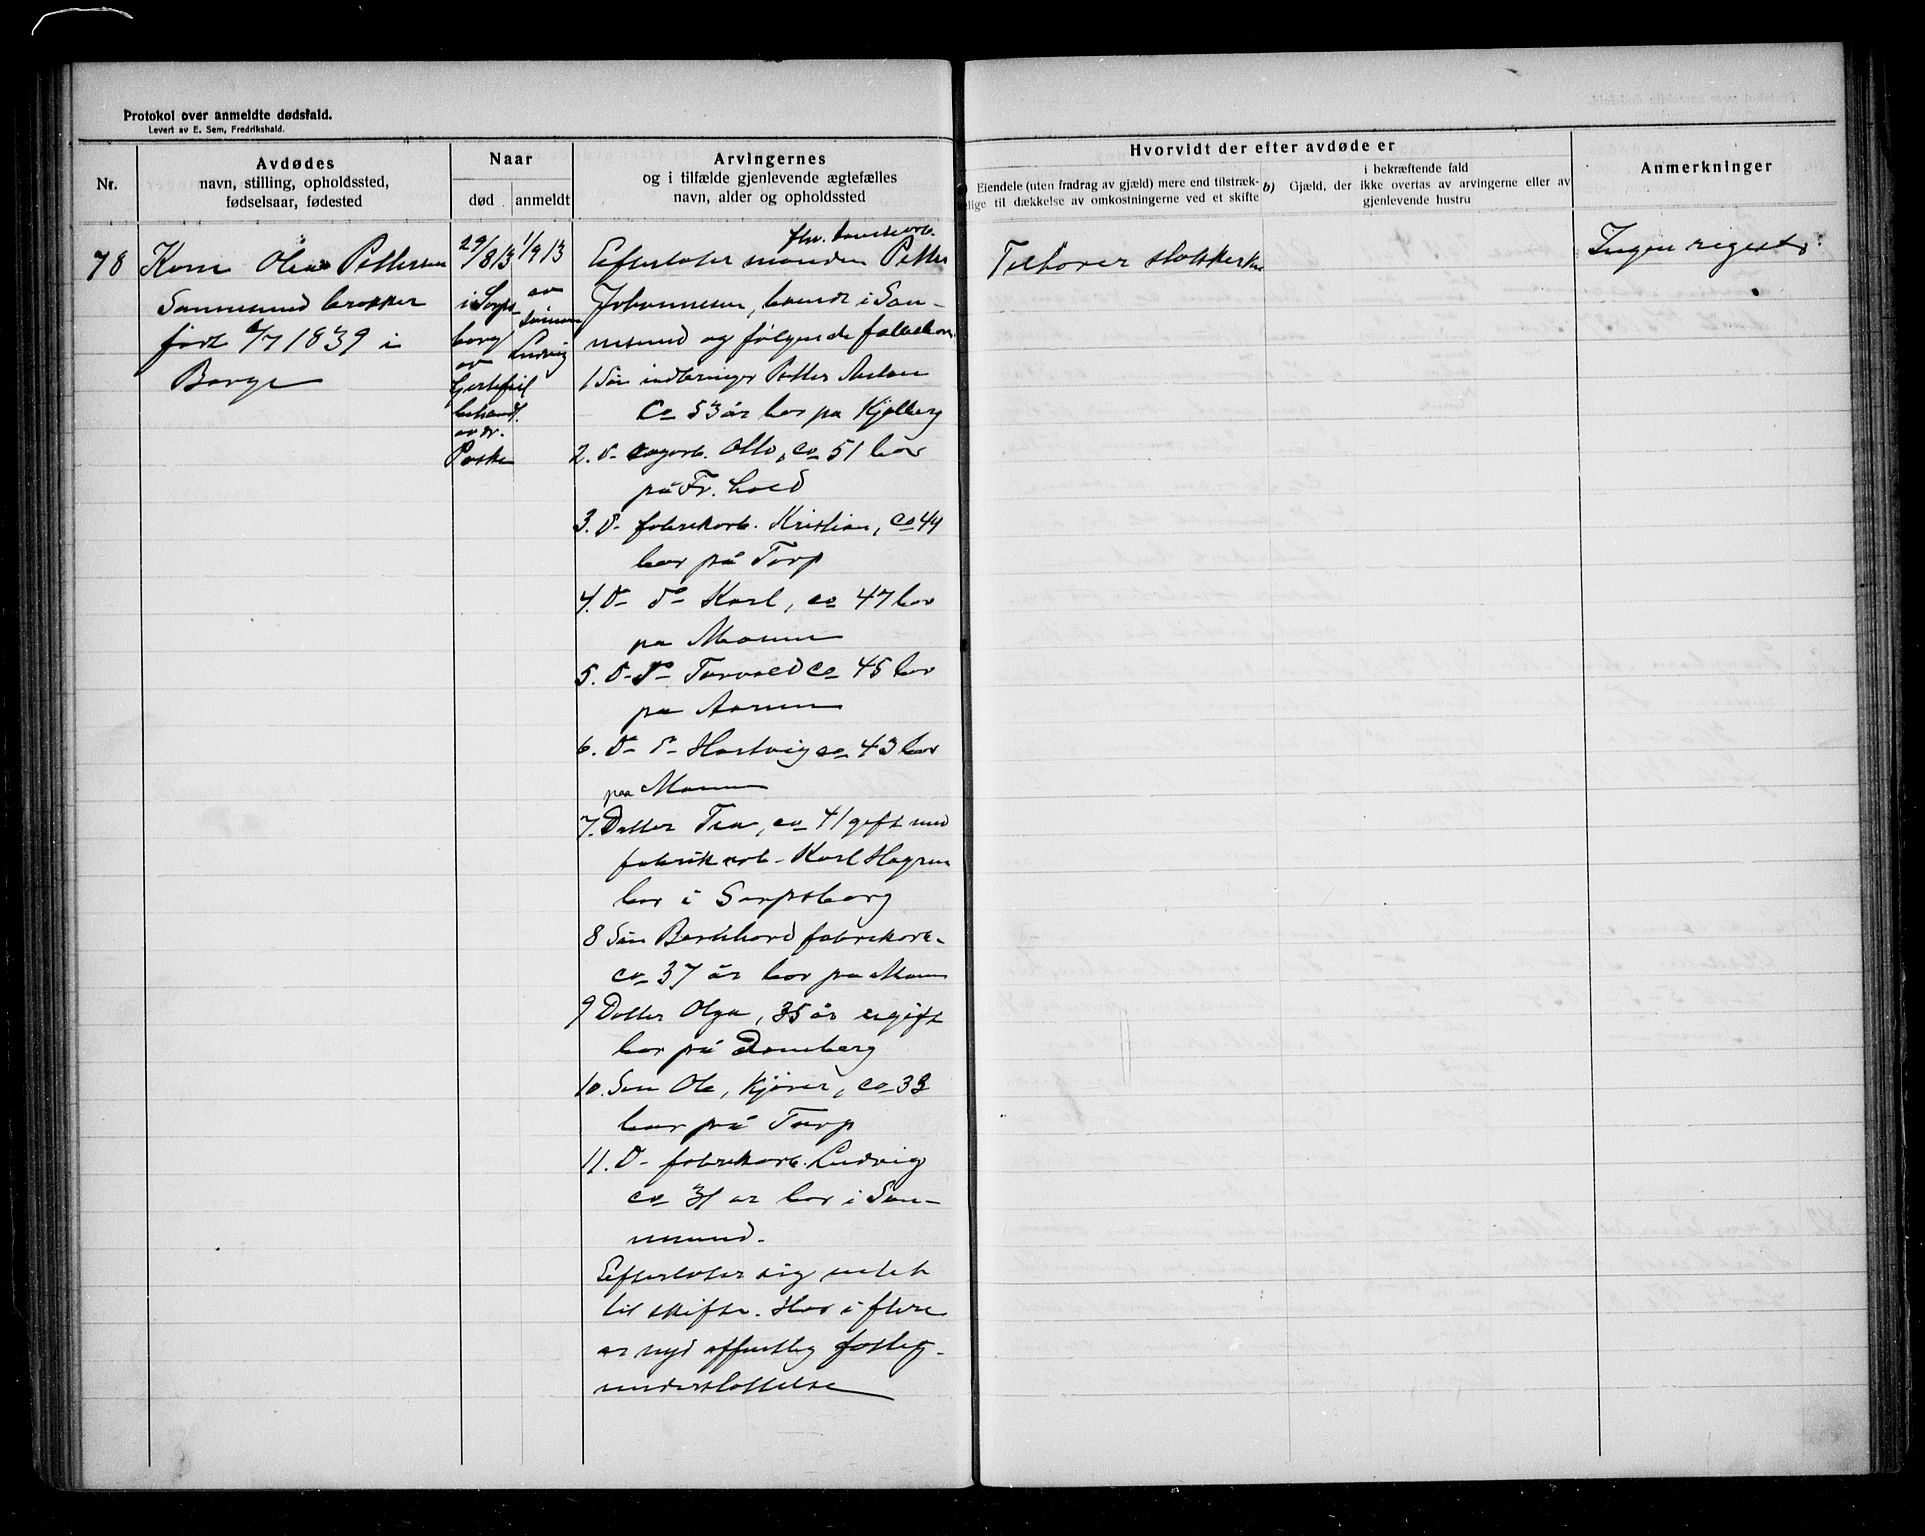 Protokol over anmeldte dødsfald.
Levert av E. Sem, Fredrikshald.
Nr.
Avdødes
navn, stilling, opholdssted,
fødselsaar, fødested
Naar
død
anmeldt
Arvingernes
og i tilfælde gjenlevende ægtefælles
navn, alder og opholdssted
Hvorvidt der efter avdøde er
Eiendele (uten fradrag av gjæld) mere end tilstræk-
lige til dækkelse av omkostningerne ved et skifte
b) Gjæld, der
i bekræftende fald
ikke overtas av arvingerne eller av
gjenlevende hustru
Anmerkninger
78
Kone Olea Pettersen
Sannesund
født 6/7 1839 i
Borge
29/8 13
i Sarps-
borg
av
hjertefeil
behandl.
av dr.
Poske
1/9 13
av
sønnen
Ludvig
fhv.
Efterlater manden Petter
Johannesen, boende i San-
nesund og følgende
1 Søn Petter Anton
ca 53 år bor pa Kjølberg
2. D- Otto, ca 51 bor
på Fr. hald
3. D- fabrikarb. Kristian, ca 49
bor på Torp
4. D- do Karl, ca 47 bor
pa Moum
5. D- do Torvald ca 45 bor
pa
6. D- do Hartvig ca 43 bor
paa Moum
7. Datter Tea, ca 41 gift med
fabrik arb. Karl
bor i Sarpsborg
8 Søn Bernhard fabrikarb.
ca 37 år bor pa Moum
9 Datter Olga, 35 år ugift
bor på
10. Søn Ole, kjører, ca 33
bor på Torp
11. D- fabrikarb. Ludvig
ca 31 ar bor i San-
nesund.
Efterlater sig intet
til skifte. Har i flere
ar nyd offentlig fattig-
understøttelse
Tilhører stokkerske
Ingen registr.